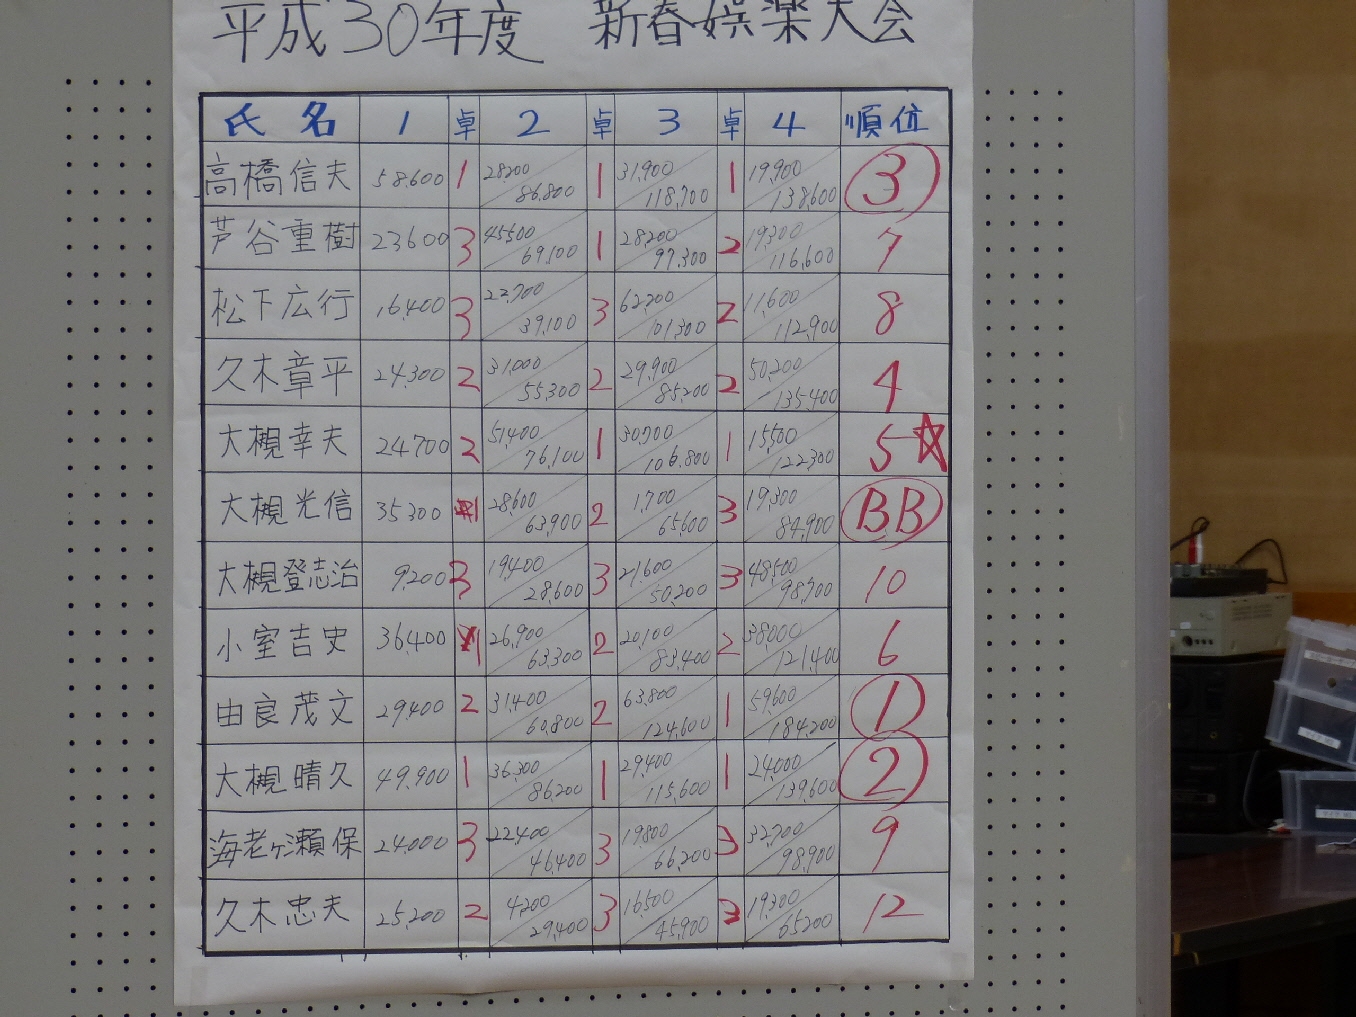 平成30年度 新春娯楽大会
氏名 1 卓 2 卓 3 卓 4 順位
高橋信夫 58,600 1 28200 86,800 1 31,900 118,700 1 19,900 138,600 3
芦谷重樹 23600 3 45500 69,100 1 28,200 97,300 2 19,300 116,600 7
松下広行 16,400 3 22,700 39,100 3 62,200 101,300 2 11,600 112,900 8
久木章平 24,300 2 31,000 55,300 2 29,900 85,200 2 50,200 135,400 4
大槻幸夫 24700 2 51,400 76,100 1 30,700 106,800 1 15,500 122300 5☆
大槻光信 35300 1 28600 63,900 2 1,700 65,600 3 19,300 84,900 BB
大槻登志治 9,200 3 19,400 28,600 3 21,600 50,200 3 48,500 98,700 10
小室吉史 36,400 1 26,900 63,300 2 20,100 83,400 2 38,000 121,400 6
由良茂文 29,400 2 31,400 60,800 2 63,800 124,600 1 59,600 184,200 1
大槻晴久 49,900 1 36,300 86,200 1 29,400 115,600 1 24,000 139,600 2
海老ヶ瀬保 24,000 3 22,400 46,400 3 19800 66,200 3 32,700 98,900 9
久木忠夫 25,200 2 4,200 29,400 3 16,500 45,900 3 19,300 65200 12